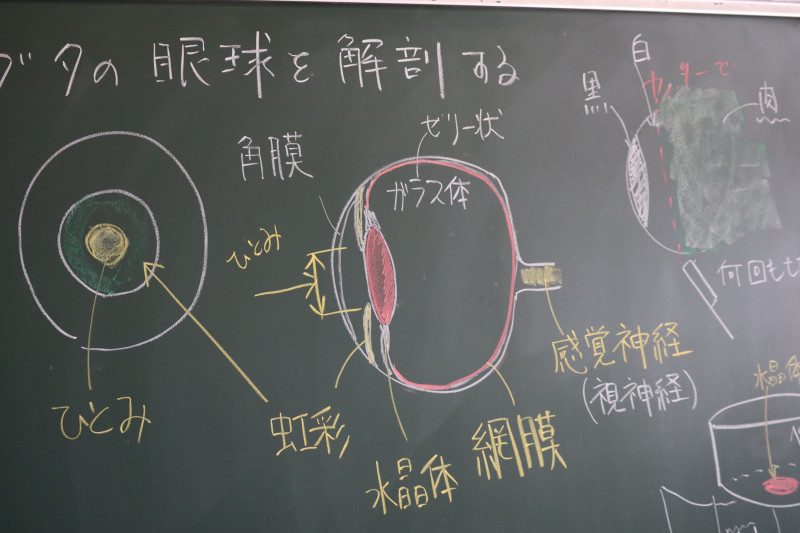 ブタの 眼球を 解剖する
角膜
ゼリー状
ガラス体
ひとみ
ひとみ
虹彩
水晶体
網膜
感覚神経
(視神経)
白
黒
カッターで
肉
何回も
水晶体